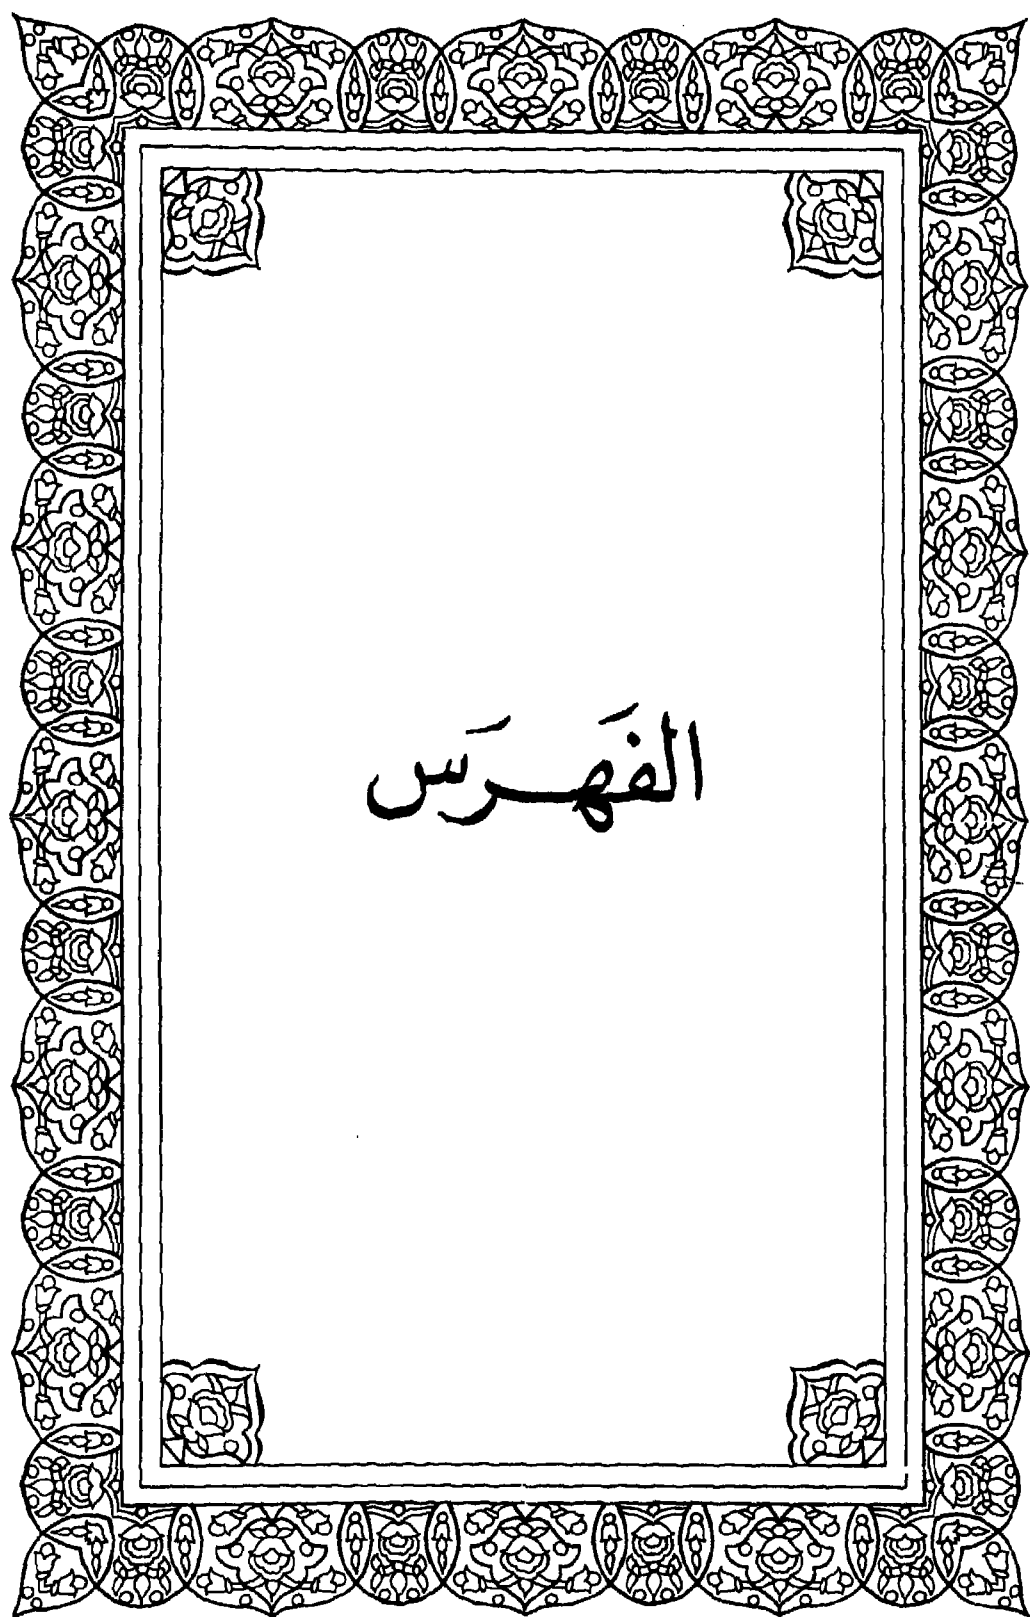 الفَهـرَس